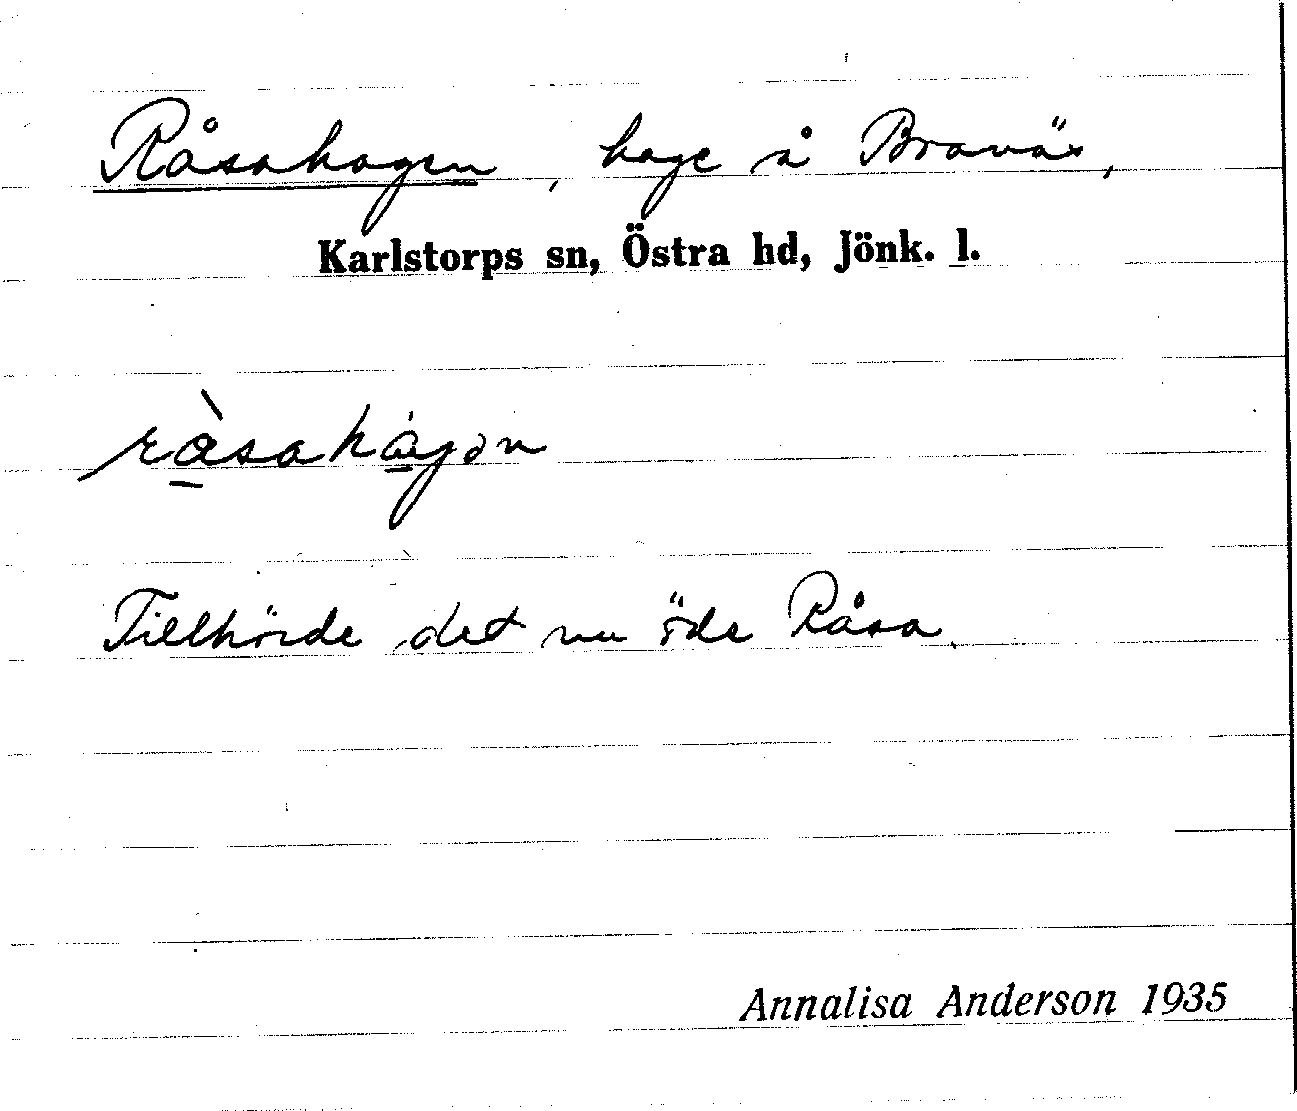 Råsahagen, hage å Bravös,
Karlstorps sn, Östra hd, Jönk. l.
Tillhörde det nu öde Råsa.
Annalisa Anderson 1935